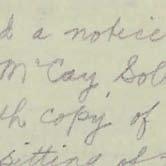 d a notice
McCay, Sol
th copy of
sitting of